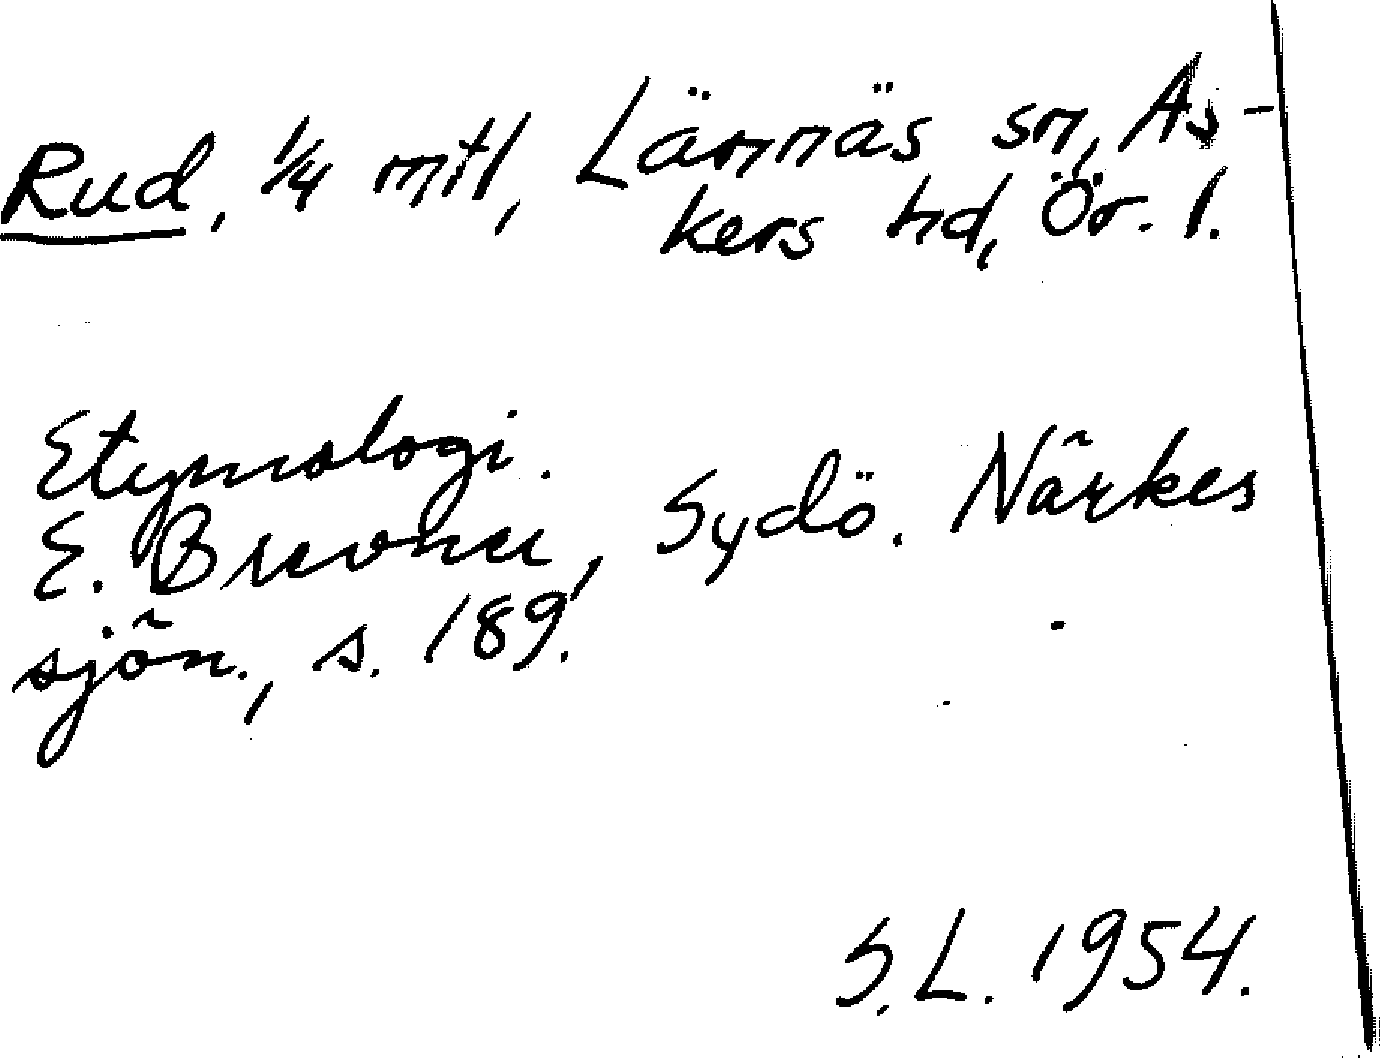 Rud, 1/4 mtl, Lännäs sn, As-
kers hd, Ör. l.
Etymologi.
E. Brevner, Sydö. Närkes
sjön., s. 189.
S.L. 1954.